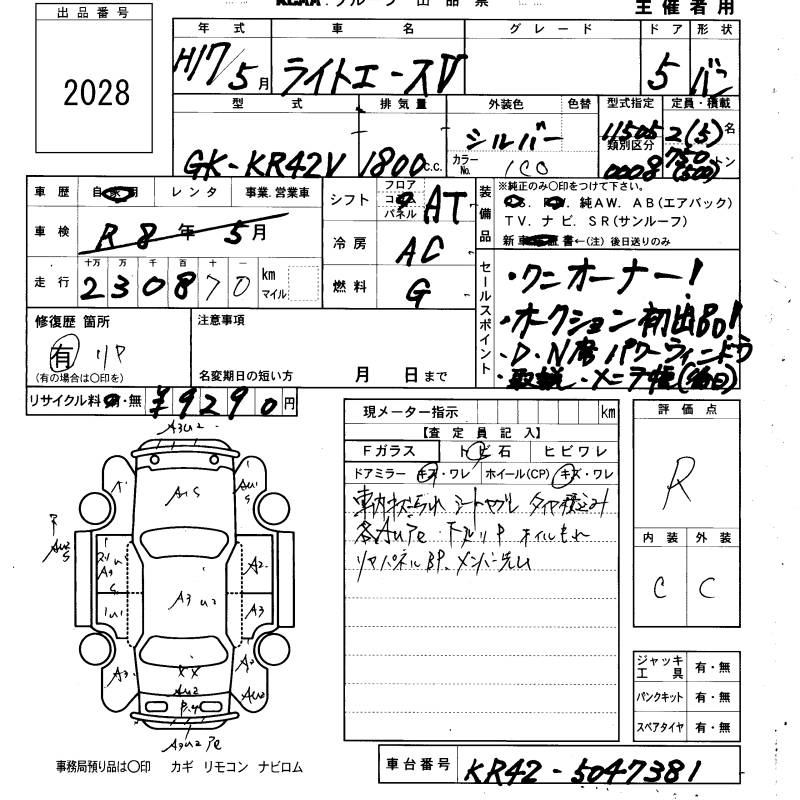 KCAA グループ 出品票
主催者用
出品番号
2028
年式 車名 グレード ドア 形状
H17/5月 ライトエースV 5 バン
型式 排気量 外装色 色替 型式指定 定員・積載
GK-KR42V 1800c.c. シルバー 11505 2(5)名
カラーNo. 1C0 類別区分 0008 750(500)トン
車歴 自家用 レンタ 事業.営業車
車検 R8年5月
走行 十万 万 千 百 十 一
230870 km マイル
シフト フロア コラム パネル AT
冷房 AC
燃料 G
装備品
※純正のみ〇印をつけて下さい。
純AW. AB(エアバック)
TV. ナビ. SR(サンルーフ)
新車保証書←(注)後日送りのみ
セールスポイント
・ワンオーナー!
・オークション初出品!
・D.N席パワーウィンドウ
・取説・メンテ帳(後日)
修復歴 箇所
有 リア
(有の場合は〇印を)
注意事項
名変期日の短い方 月 日まで
リサイクル料 有・無 ¥9290円
現メーター指示 km
【査定員記入】
Fガラス トビ石 ヒビワレ
ドアミラー キズ・ワレ ホイール(CP) キズ・ワレ
車内 シートヤブレ
各AUPe 下廻りP オイルもれ
リアパネルBP、メンバー
評価点
R
内装 外装
C C
ジャッキ工具 有・無
パンクキット 有・無
スペアタイヤ 有・無
A3U2
A1S
AU1S
A2
A3
A3U2
XX
AU2
事務局預り品は〇印 カギ リモコン ナビロム
車台番号 KR42-5047381